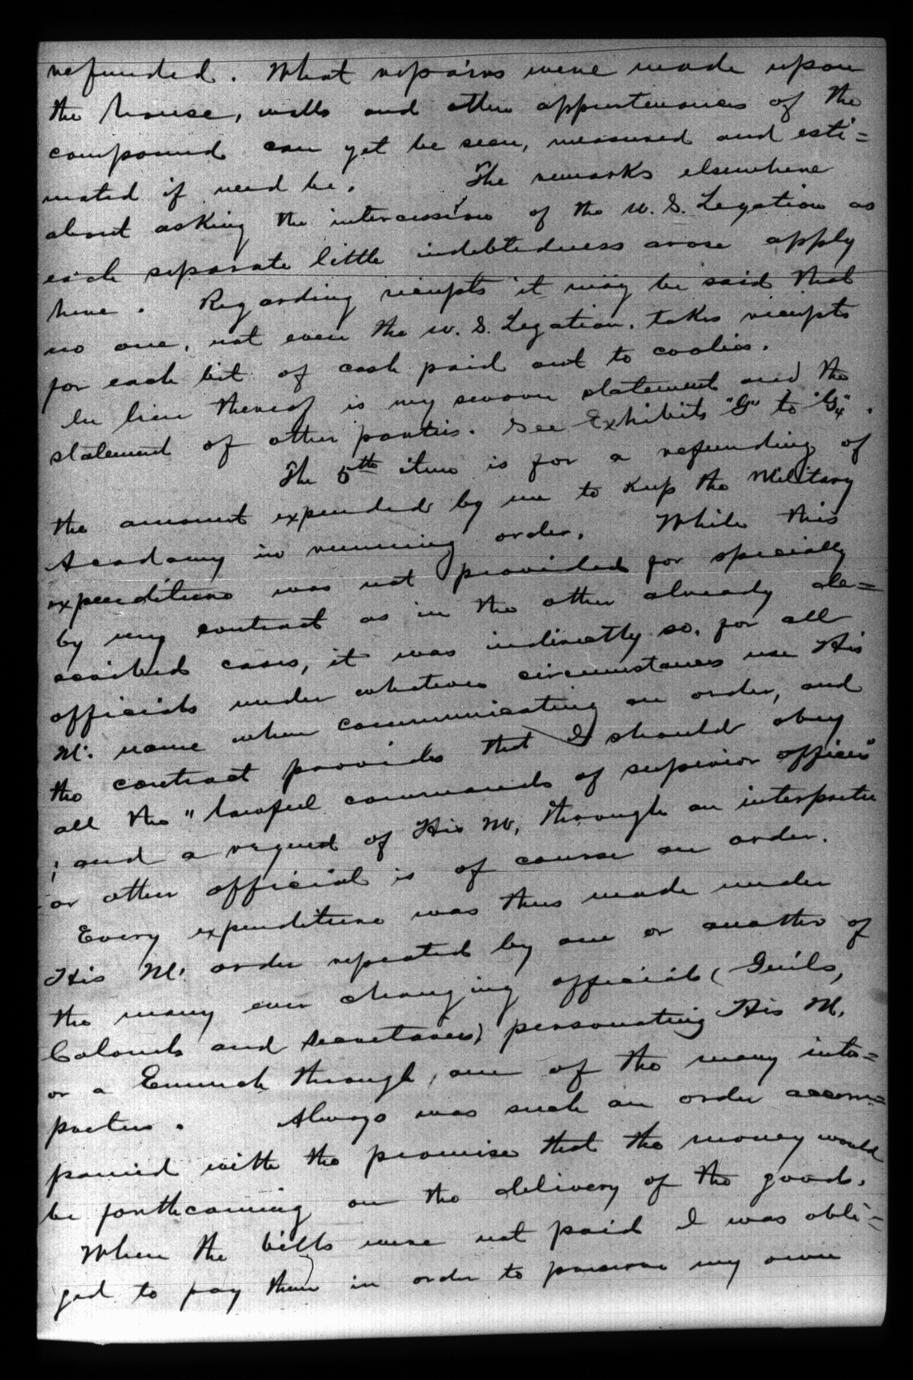 refunded. What repairs were made upon
the house, walls and other appurtenances of the
compound can yet be seen, measured and esti=
mated if need be. The remarks elsewhere
about asking the intercession of the U.S. Legation as
each separate little indebtedness arose apply
here. Regarding receipts it may be said that
no one, not even the U.S. Legation, takes receipts
for each bit of cash paid out to coolies.
In lieu thereof is my sworn statement and the
statement of other parties. See Exhibits "G" to "G4".
The 5th item is for a refunding of
the amount expended by me to keep the Military
Academy in running order. While this
expenditure was not provided for specially
by my contract as in the other already de=
scribed cases, it was indirectly so, for all
officials under whatever circumstances use His
M. name when communicating an order, and
the contract provides that I should obey
all the "lawful commands of superior officers"
; and a request of His M, through an interpreter
or other official is of course an order.
Every expenditure was thus made under
His M. order repeated by one or another of
the many ever changing officials (Guils,
Colonels and Secretaries) personating His M.
or a Eunuch through, one of the many inter=
preters. Always was such an order accom=
panied with the promise that the money would
be forthcoming on the delivery of the goods.
When the bills were not paid I was obli=
ged to pay them in order to preserve my own